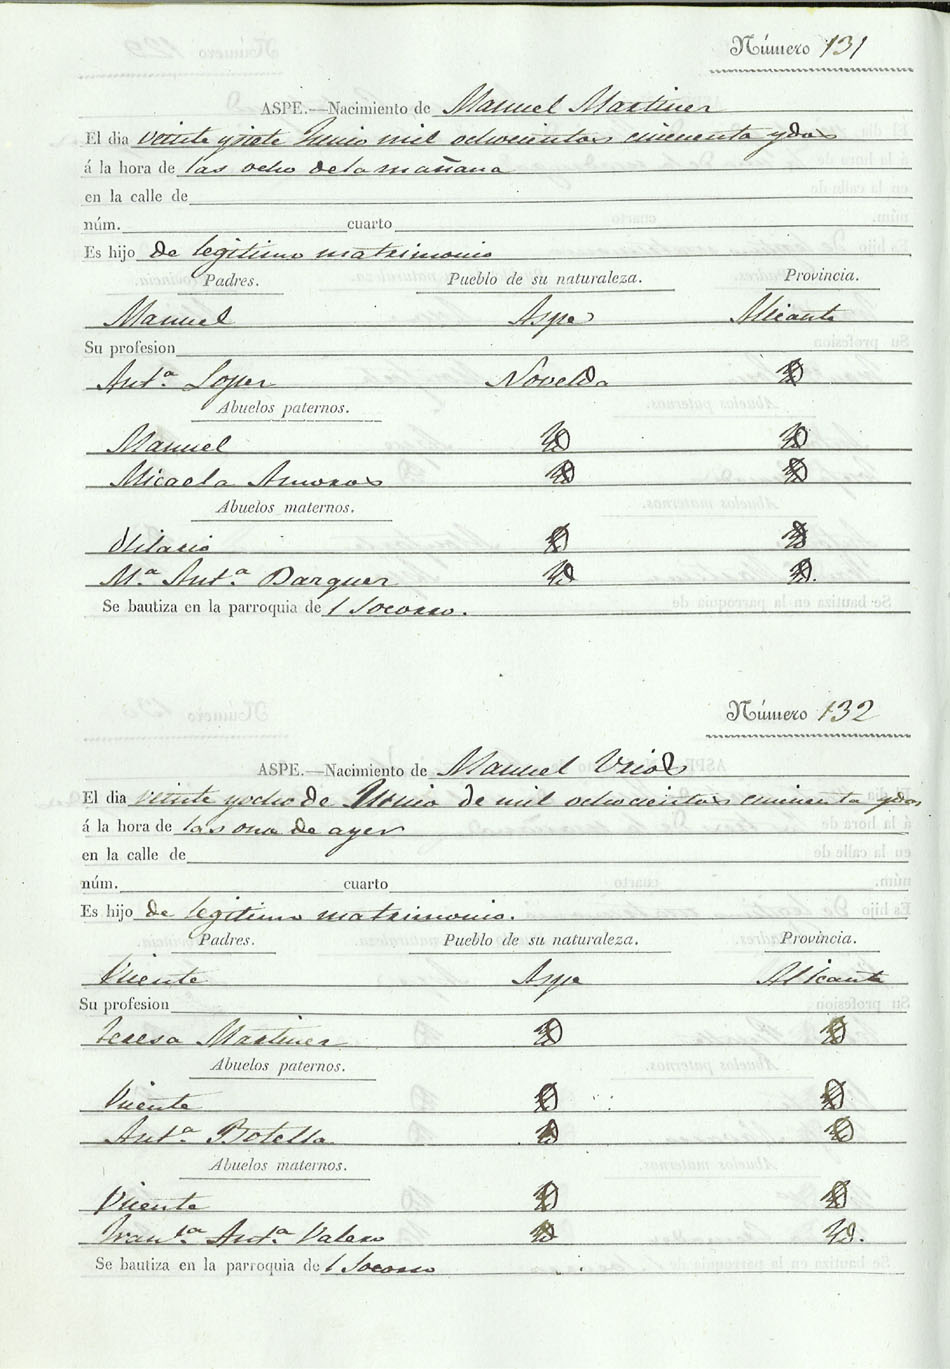 Número 131
ASPE.—Nacimiento de Manuel Martinez
El dia veinte y siete Junio mil ochocientos cincuenta y dos
á la hora de las ocho de la mañana
en la calle de
núm. cuarto
Es hijo de legitimo matrimonio
Padres. Pueblo de su naturaleza. Provincia.
Manuel Aspe Alicante
Su profesion
Antª Lopez Novelda Yd
Abuelos paternos.
Manuel Yd Yd
Micaela Amoros Yd Yd
Abuelos maternos.
Hilario Yd Yd
Mª Antª Barquer Yd Yd.
Se bautiza en la parroquia de l Socorro.
Número 132
ASPE.—Nacimiento de Manuel Urios
El dia veinte y ocho de Junio de mil ochocientos cincuenta y dos
á la hora de las onse de ayer
en la calle de
núm. cuarto
Es hijo de legitimo matrimonio.
Padres. Pueblo de su naturaleza. Provincia.
Vicente Aspe Alicante
Su profesion
Teresa Martinez Yd Yd
Abuelos paternos.
Vicente Yd Yd
Antª Botella Yd Yd
Abuelos maternos.
Vicente Yd Yd
Francᵃ Antª Valero Yd Yd.
Se bautiza en la parroquia de l Socorro